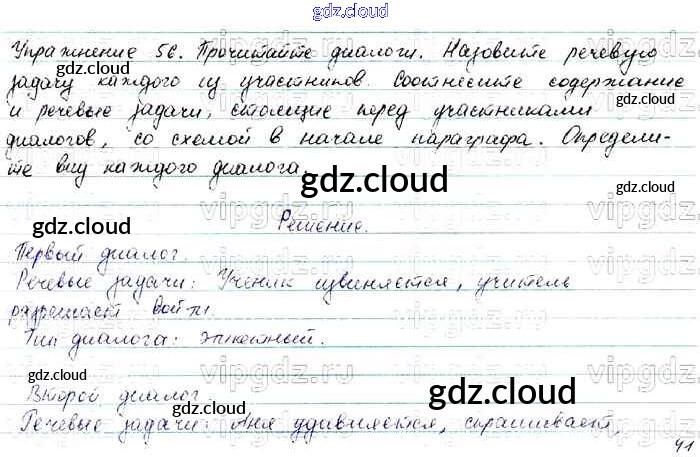 gdz.cloud
Упражнение 56. Прочитайте диалоги. Назовите речевую
задачу каждого из участников. Соотнесите содержание
и речевые задачи, стоящие перед участниками
диалогов, со схемой в начале параграфа. Определи-
те вид каждого диалога.
gdz.cloud
gdz.cloud
gdz.cloud
vipgdz.ru
Решение.
Первый диалог.
Речевые задачи: Ученик извиняется, учитель
разрешает войти.
Тип диалога: этикетный.
gdz.cloud
gdz.cloud
vipgdz.ru
Второй диалог.
Речевые задачи: Аня удивляется, спрашивает,
gdz.cloud
41